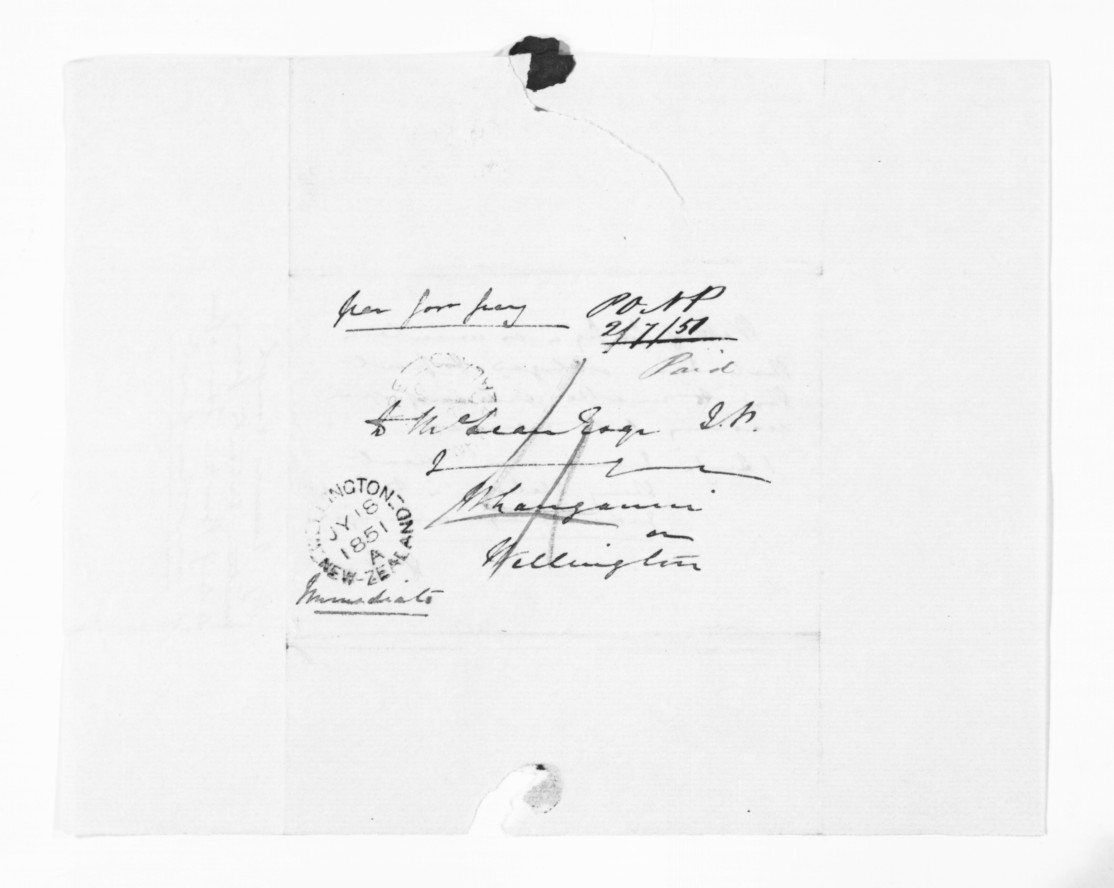 PO. N P
2/7/51
Paid
McLean Esqr I.P.
Whanganui
or
Wellington
WELLINGTON
NEW-ZEALAND
JY 18
1851
A
Immediate